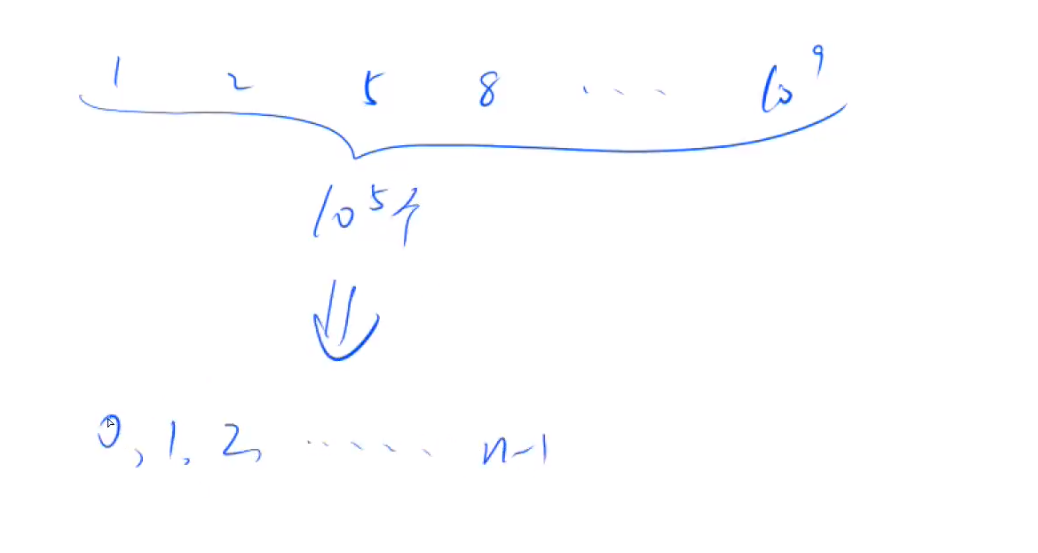 1 2 5 8 ... 10⁹
10⁵个
0, 1, 2, ...... n-1